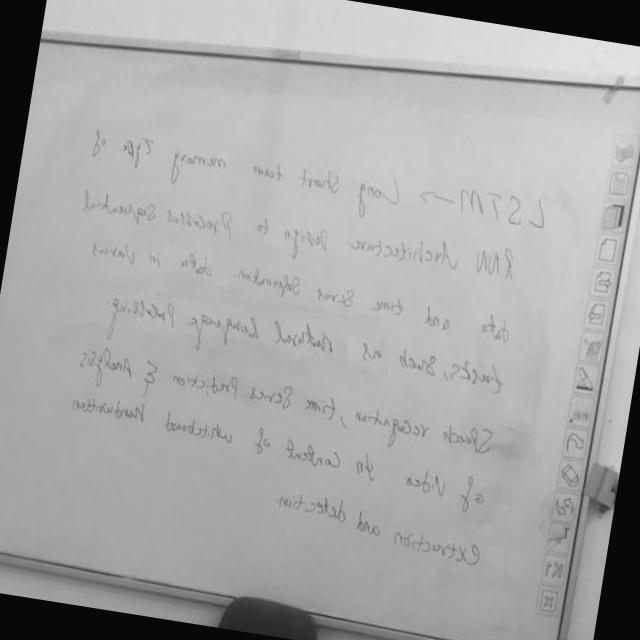 LSTM → Long Short term memory Type of
RNN Architecture Design to Process Sequential
data and time Series information data in Varies
tasks, Such as Natural Language Processing,
Speech recognition, time Series Prediction & Analysis
of video In Context of whiteboard handwritten
Extraction and detection